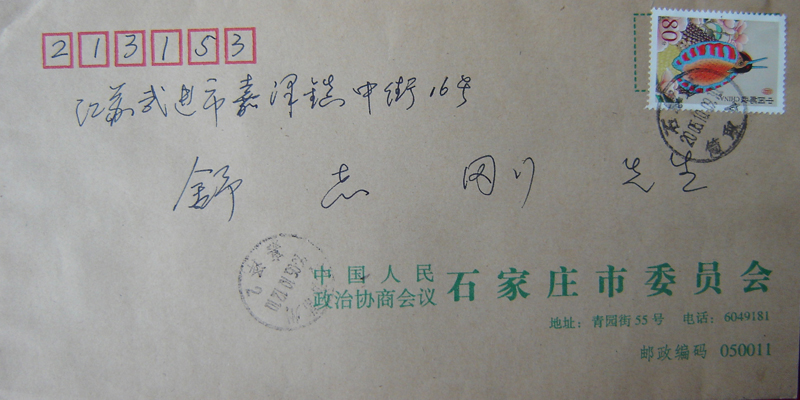 213153
80
中国邮政 CHINA
江苏武进市嘉泽镇中街16号
舒志刚先生
中国人民
政治协商会议
石家庄市委员会
地址：青园街55号 电话：6049181
邮政编码 050011